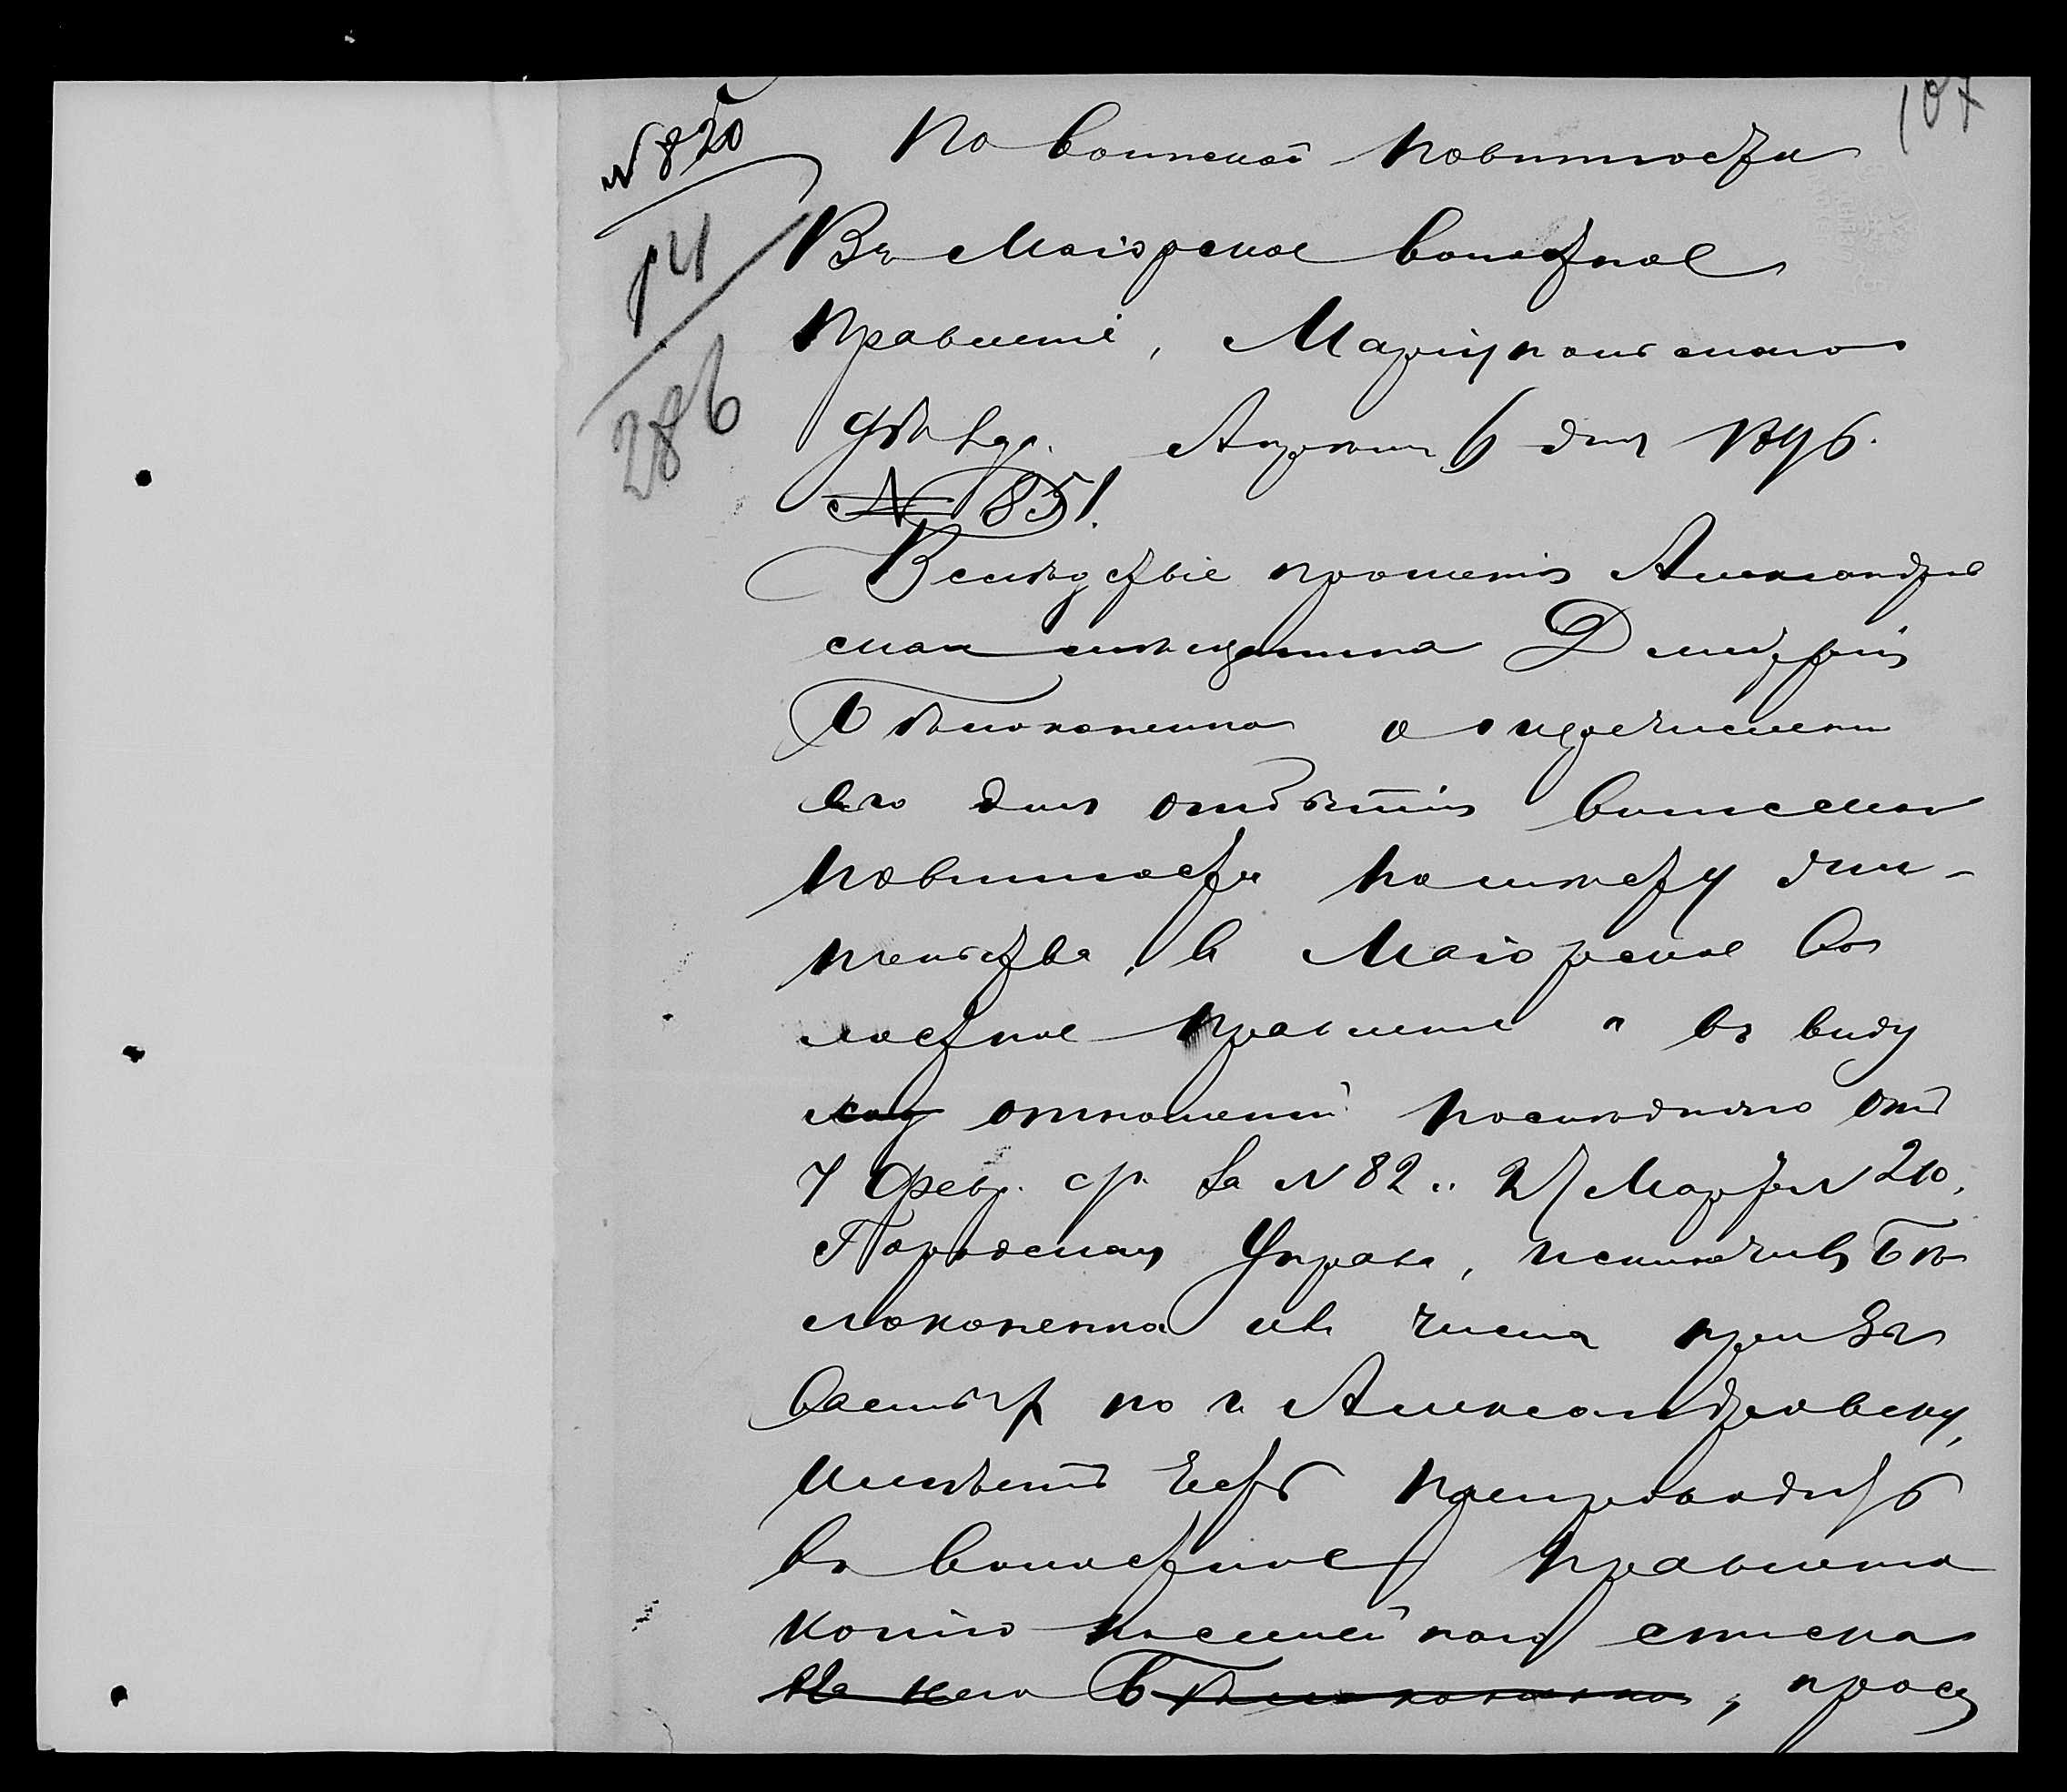 107
№ 820
14
286
По воинской повинности
Въ Маіорское волостное
Правленіе, Маріупольскаго
уѣзда. Апрѣля 6 дня 1896.
№ 851.
Вслѣдствіе прошенія Александров
скаго мѣщанина Димитрія
Бѣлоконенка о перечислении
его для отбытія воинской
повинности по мѣсту жи-
тельства, въ Маіорское во
лостное правленіе и въ виду
отношеній послѣдняго отъ
7 Февр. с/г. за № 82 и 27 Марта № 210,
Городская Управа, исключивъ Бѣ
локоненка изъ числа призы
ваемыхъ по г. Александровску,
имѣетъ честь препроводить
въ волостное правленіе
копію посемейнаго списка
на него Бѣлоконенко, прося